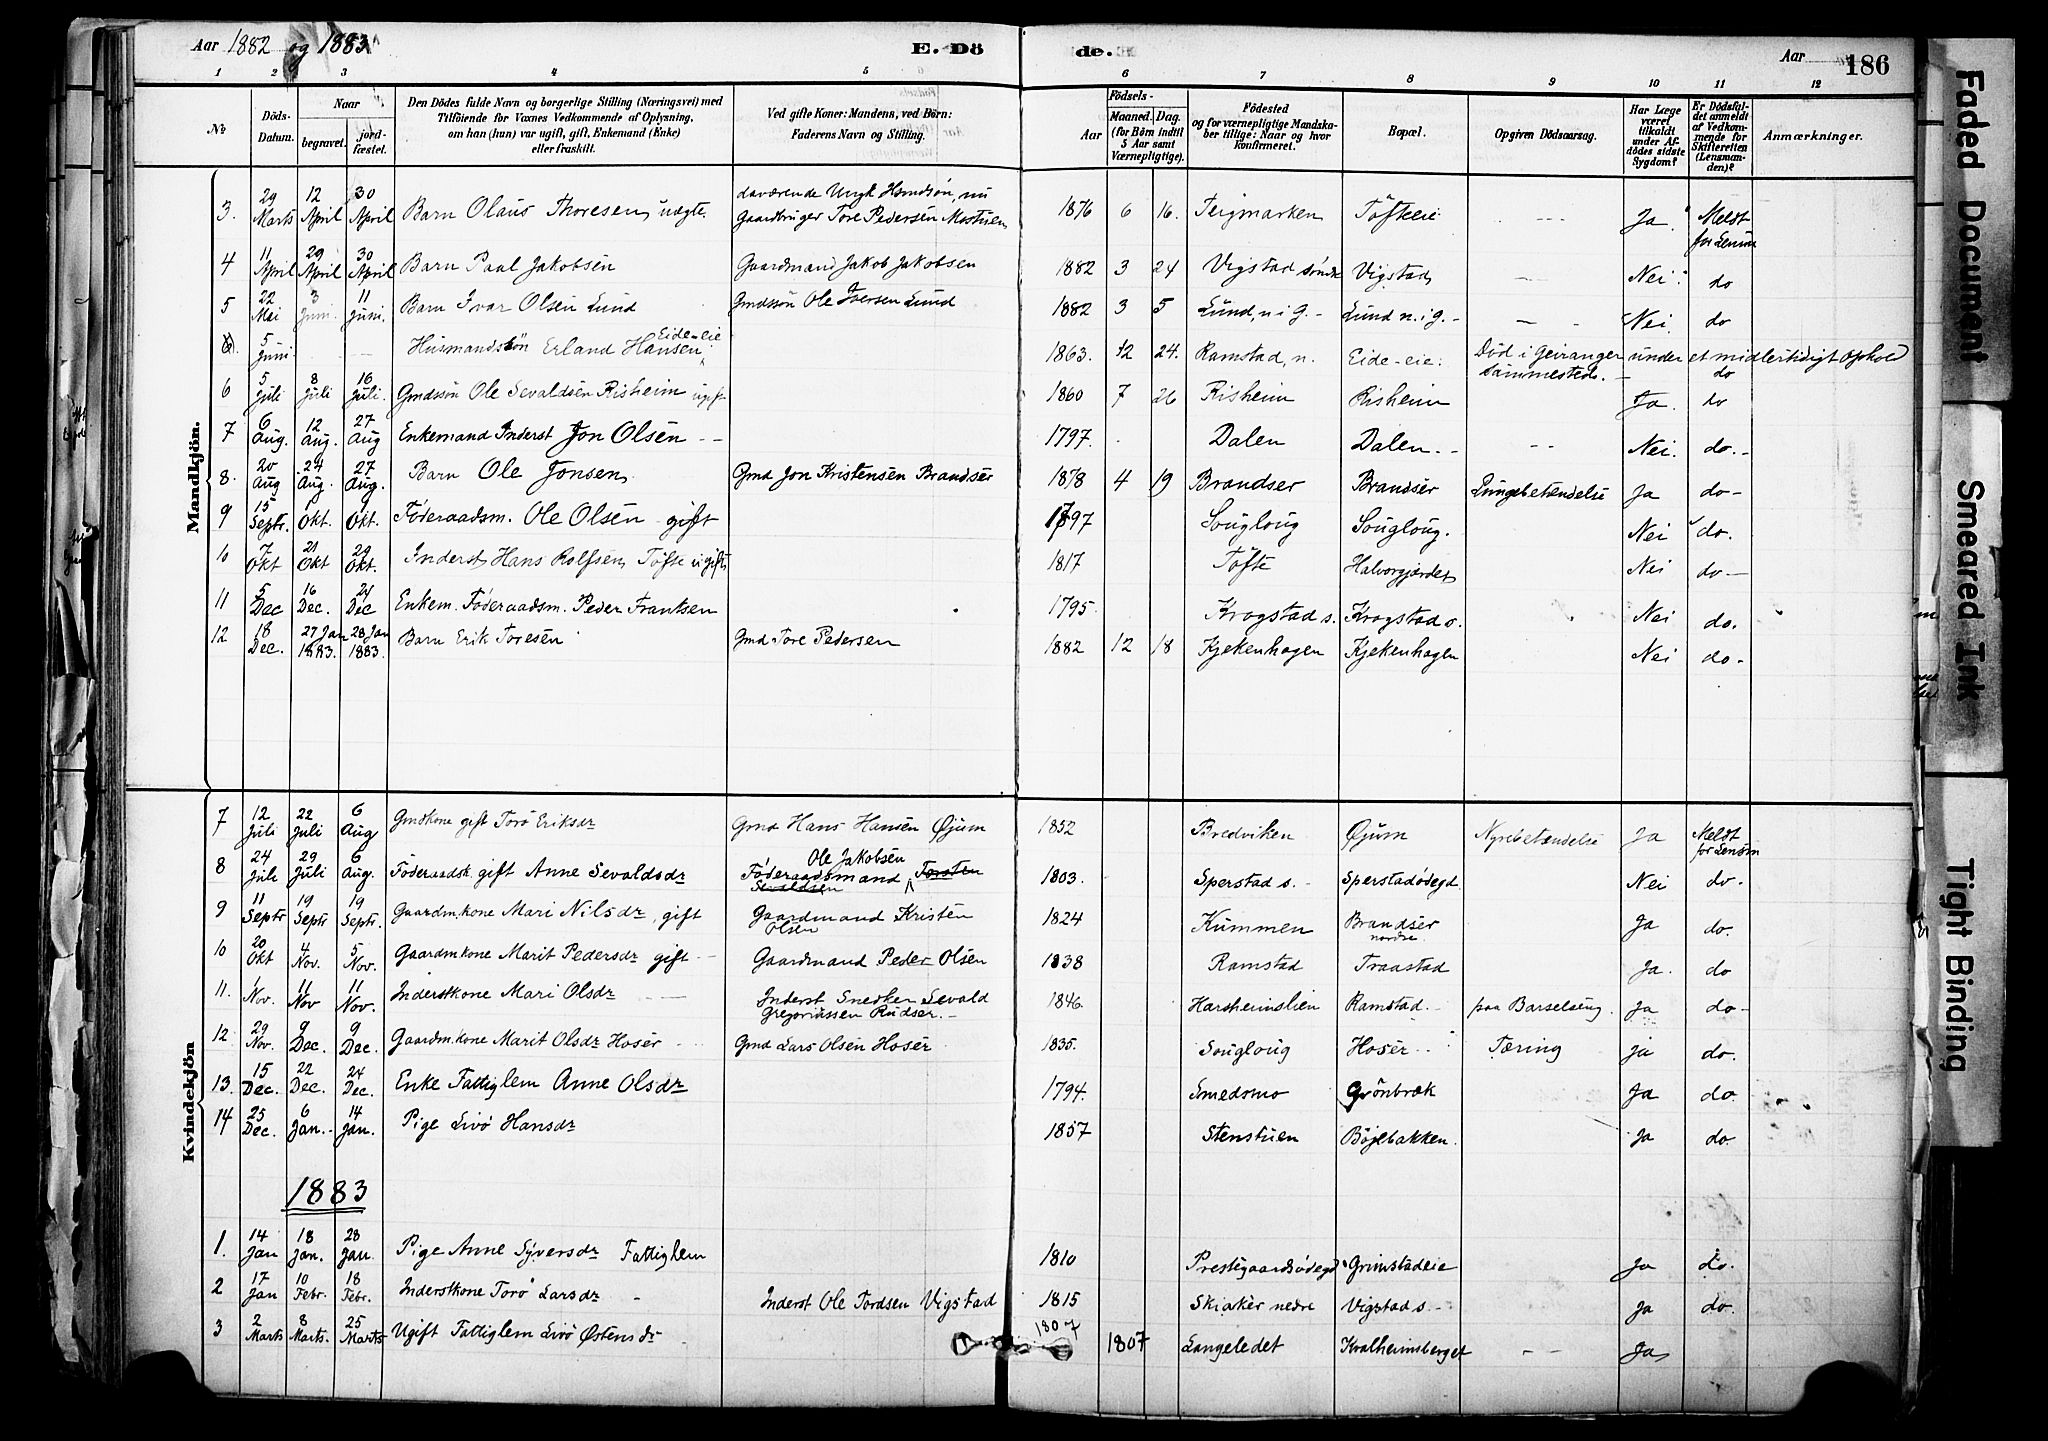 Aar 1882 og 1883 E. Dö de. Aar 186
1 2 3 4 5 6 7 8 9 10 11 12
No Döds-Datum. Naar begravet. jord-fæstet. Den Dödes fulde Navn og borgerlige Stilling (Næringsvei) med Tilföiende for Voxnes Vedkommende af Oplysning, om han (hun) var ugift, gift, Enkemand (Enke) eller fraskilt. Ved gifte Koner: Mandens, ved Börn: Faderens Navn og Stilling. Födsels- Aar Maaned. Dag. (for Börn indtil 5 Aar samt Værnepligtige). Födested og for værnepligtige Mandska-ber tillige: Naar og hvor Konfirmeret. Bopæl. Opgiven Dödsaarsag. Har Læge været tilkaldt under Af-dödes sidste Sygdom? Er Dödsfal-det anmeldt af Vedkom-mende for Skifteretten (Lensman-den)? Anmærkninger.
Mandkjön.
3. 29 Marts 12 April 30 April Barn Olaus Thoresen uægte. daværende Ungk Hsmdsøn, nu Gaardbruger Tore Pedersen Mostuen 1876 6 16. Teigmarken Tofteeie - - - Ja. Meldt for Lensm
4 11 April 29 April 30 April Barn Paal Jakobsen Gaardmand Jakob Jakobsen 1882 3 24 Vigstad søndr Vigstad - Nei. do
5 22 Mai 3 Juni. 11 Juni. Barn Ivar Olsen Lund Gmdssøn Ole Iversen Lund 1882 3 5 Lund, n i g. - Lund n. i g. - - - Nei. do
6. 5 Juni - - Husmandssøn Erland Hansen Eide-eie 1863. 12 24. Ramstad, n. Eide-eie. Død i Geiranger under et midlertidigt Ophold sammesteds. - do
6 5 Juli 8 Juli 16 Juli. Gmdssøn Ole Sevaldsen Risheim ugift 1860 7 26 Risheim Risheim Ja. do
7 6 Aug. 12 Aug. 27 Aug Enkemand Inderst Jon Olsen - - 1797. Dalen Dalen. - - - Nei. do. -
8. 20 Aug 24 Aug. 27 Aug. Barn Ole Jonsen Gmd Jon Kristensen Brandser 1878 4 19 Brandser Brandser Lungebetændelse Ja do -
9 15 Septr. 1 Okt. 1 Okt. Føderaadsm. Ole Olsen gift 1797 Sougloug Sougloug. Nei do.
10 7 Okt 21 Okt 29 Okt. Inderst Hans Rolfsen Tofte ugift 1817 Tofte Halvorgjærdet Nei do -
11 5 Dec 16 Dec. 24 Dec Enkem. Føderaadsm. Peder Frantsen 1795. Krogstad s. Krogstad s. Nei do.
12 18 Dec. 27 Jan 1883. 28 Jan 1883. Barn Erik Toresen Gmd Tore Pedersen 1882 12 18 Kjekenhagen Kjekenhagen Nei do -
Kvindekjön
7 12 Juli 22 Juli 6 Aug Gmdkone gift Torø Eriksdr Gmd Hans Hansen Øjum 1852 Bredviken Øjum Nyrebetændelse Ja Meldt for Lensm
8 24 Juli 29 Juli 6 Aug. Føderaadsk. gift Anne Sevaldsdr Føderaadsmand Torsten Sevaldsen Ole Jakobsen 1803. Sperstad s. - Sperstadødegd. Nei do.
9 11 Septr 19 Septr 19 Septr. Gaardm.kone Mari Nilsdr, gift Gaardmand Kristen Olsen 1824 Kummen Brandser nordre. Ja do.
10 20 Okt 4 Nov. 5 Nov. Gaardmkone Marit Pedersdr gift - Gaardmand Peder Olsen 1838 Ramstad Traastad Ja. do
11. 1 Nov. 11 Nov 11 Nov. Inderstkone Mari Olsdr - Inderst Snedker Sevald Gregoriussen Rudser. - 1846 Harsheimslien Ramstad. - paa Barselseng. Ja do -
12 29 Nov. 9 Dec. 9 Dec. Gaardm.kone Marit Olsdr Hoser Gmd Lars Olsen Hoser 1835. Sougloug Hoser - Tæring ja do.
13. 15 Dec. 22 Dec. 24 Dec. Enke Fattiglem Anne Olsdr 1794. Smedsmo Grønbræk Ja do
14 25 Dec. 6 Jan. 14 Jan. Pige Livø Hansdr 1857 Stenstuen Bøjebakken. Ja do.
1883
1. 14 Jan 18 Jan. 28 Jan. Pige Anne Syversdr Fattiglem 1810 Prestegaardsødegd Grimstadeie Ja do.
2 17 Jan 10 Febr. 18 Febr. Inderstkone Torø Larsdr - Inderst Ole Tordsen Vigstad 1815 Skiaker nedre Vigstad s. - Ja do.
3 2 Marts 8 Marts. 25 Marts Ugift Fattiglem Livø Østensdr 1807 1807 Langeledet Kvalheimsberget - - Ja
Faded Document
Smeared Ink
Tight Binding